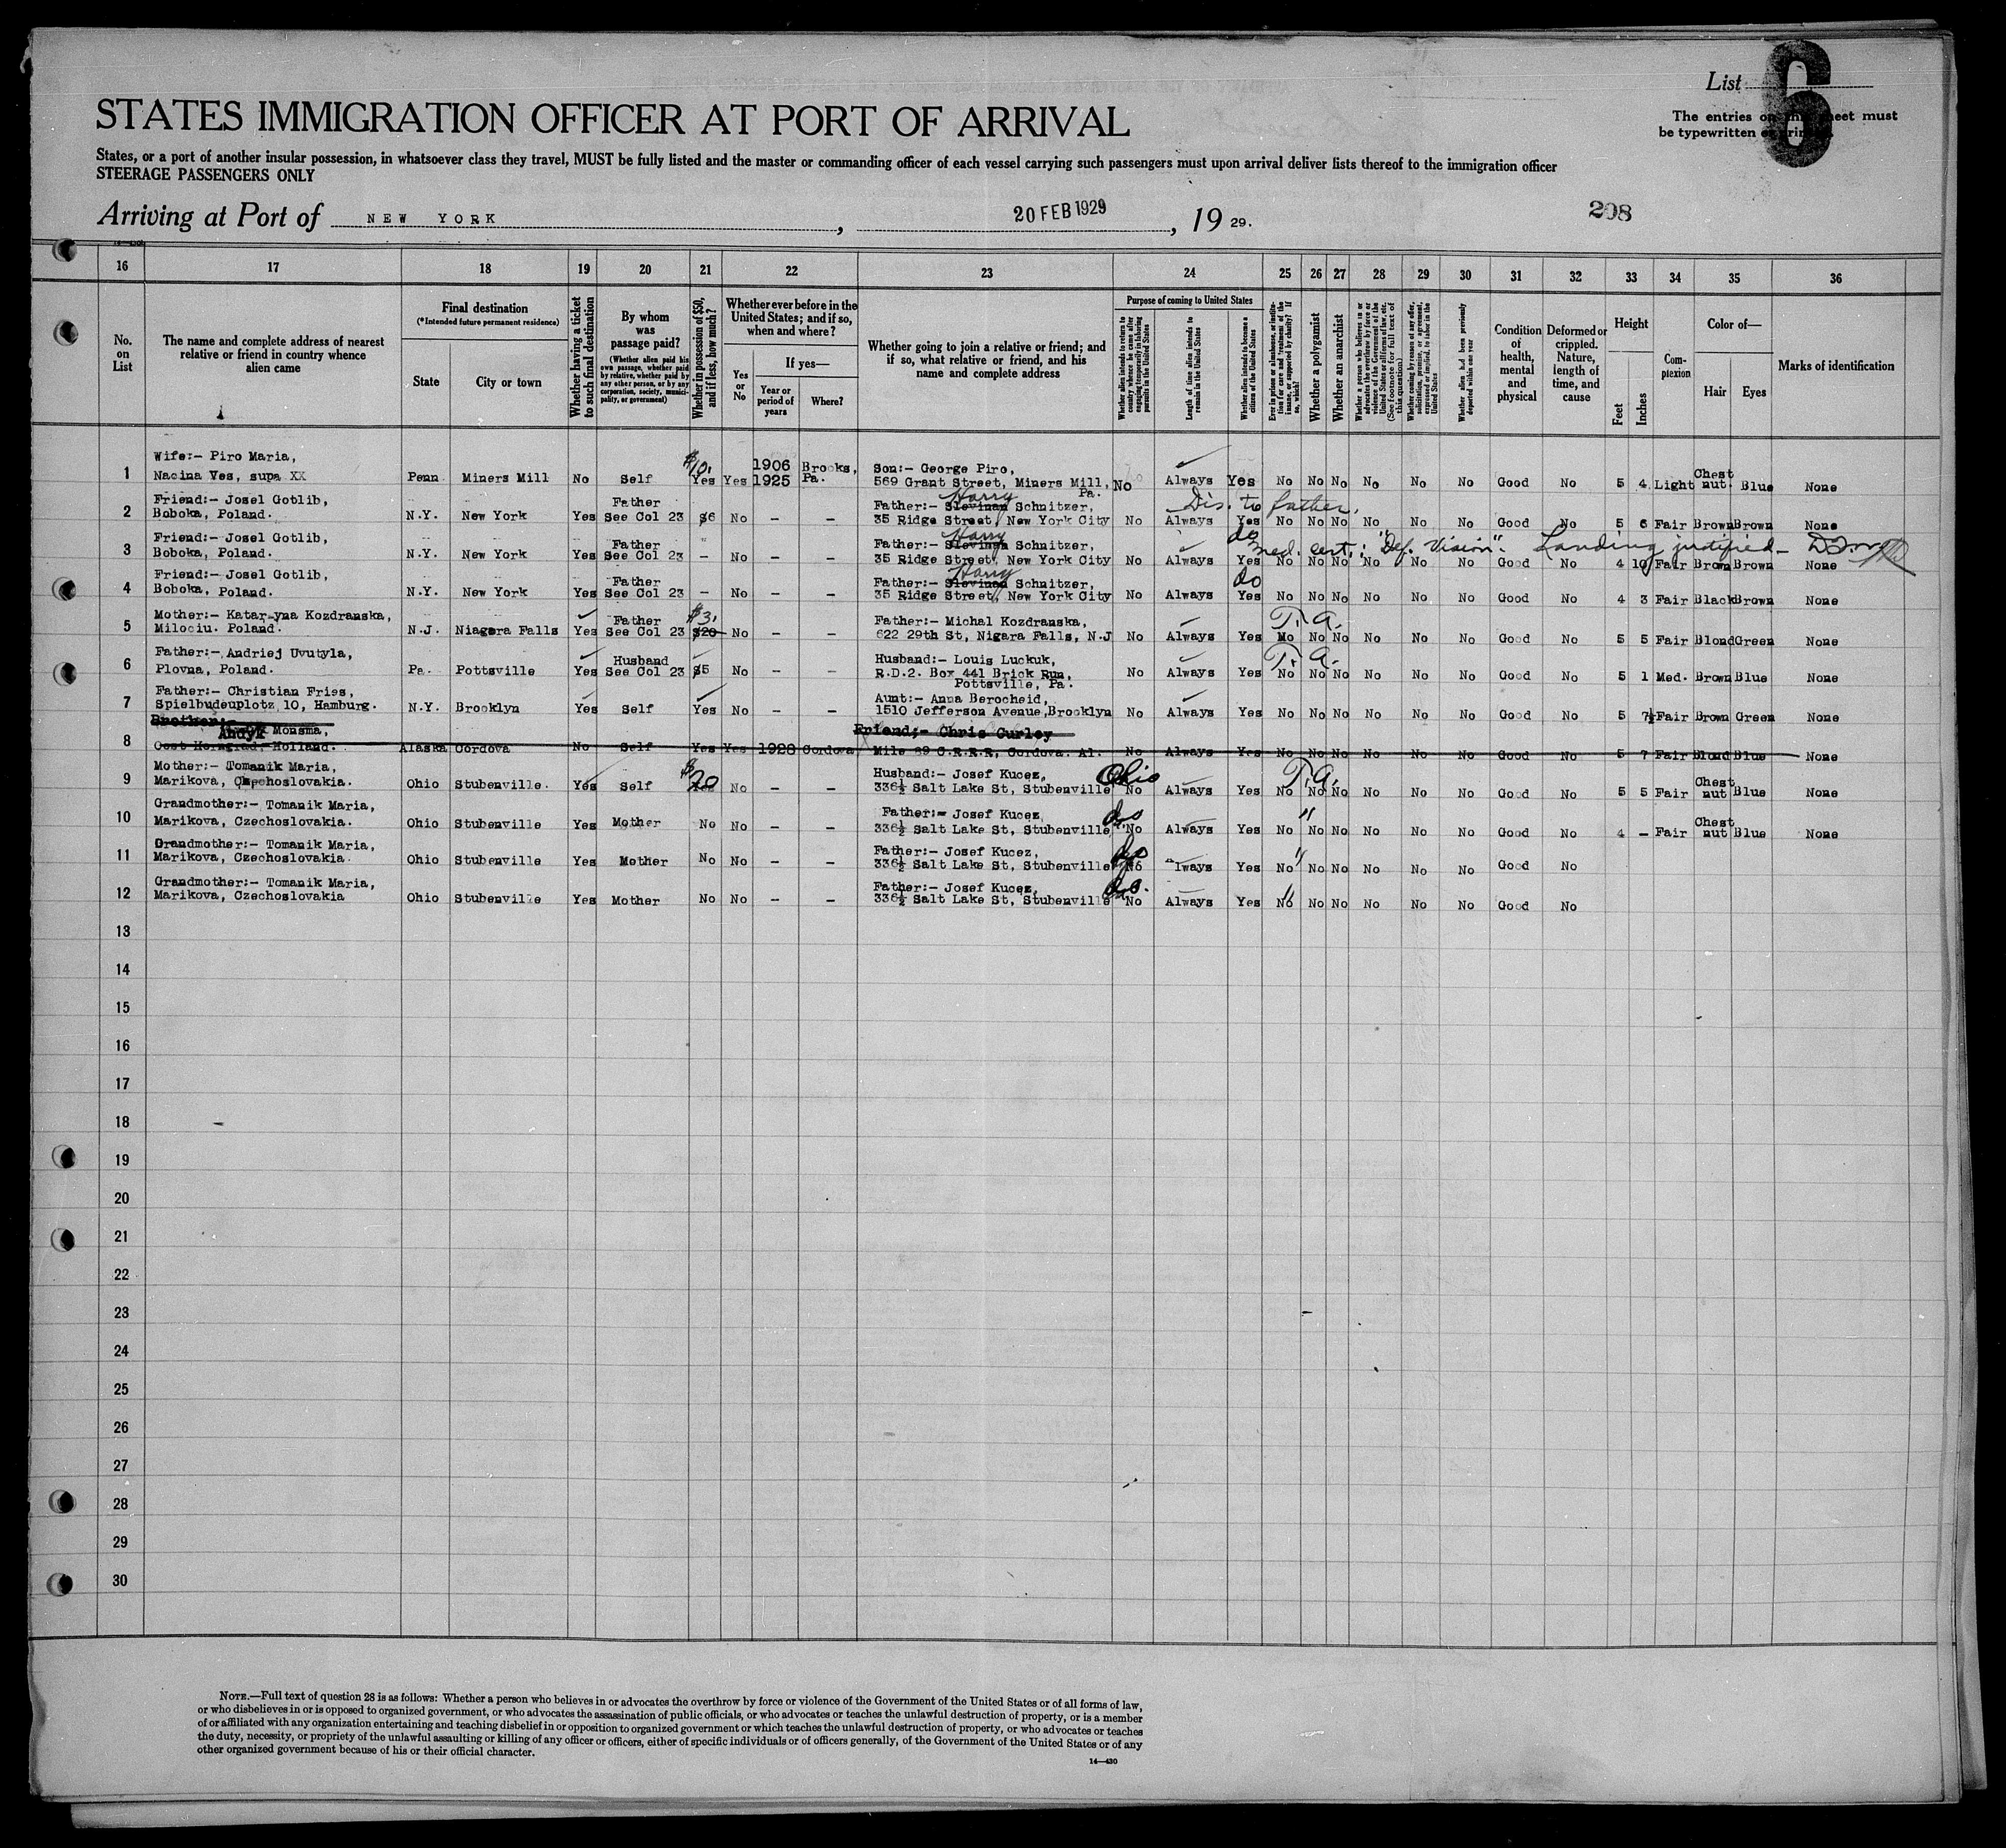 List 6
STATES IMMIGRATION OFFICER AT PORT OF ARRIVAL
The entries on this sheet must
be typewritten or printed.
States, or a port of another insular possession, in whatsoever class they travel, MUST be fully listed and the master or commanding officer of each vessel carrying such passengers must upon arrival deliver lists thereof to the immigration officer
STEERAGE PASSENGERS ONLY
Arriving at Port of NEW YORK, 20 FEB 1929, 19 29.
208
16 17 18 19 20 21 22 23 24 25 26 27 28 29 30 31 32 33 34 35 36
No. on List
The name and complete address of nearest relative or friend in country whence alien came
Final destination
(*Intended future permanent residence)
State
City or town
Whether having a ticket to such final destination
By whom was passage paid?
(Whether alien paid his own passage, whether paid by relative, whether paid by any other person, or by any corporation, society, municipality, or government)
Whether in possession of $50, and if less, how much?
Whether ever before in the United States; and if so, when and where?
Yes or No
If yes—
Year or period of years
Where?
Whether going to join a relative or friend; and if so, what relative or friend, and his name and complete address
Purpose of coming to United States
Whether alien intends to return to country whence he came after engaging temporarily in laboring pursuits in the United States
Length of time alien intends to remain in the United States
Whether alien intends to become a citizen of the United States
Ever in prison or almshouse, or institution for care and treatment of the insane, or supported by charity? If so, which?
Whether a polygamist
Whether an anarchist
Whether a person who believes in or advocates the overthrow by force or violence of the Government of the United States or all forms of law, etc. (See footnote for full text of this question)
Whether coming by reason of any offer, solicitation, promise, or agreement, expressed or implied, to labor in the United States
Whether alien had been previously deported within one year
Condition of health, mental and physical
Deformed or crippled. Nature, length of time, and cause
Height
Feet
Inches
Complexion
Color of—
Hair
Eyes
Marks of identification
Wife:- Piro Maria, $10. 1906 Brooks, Son:- George Piro, Chest
1 Nacina Ves, supa XX Penn Miners Mill No Self Yes Yes 1925 Pa. 569 Grant Street, Miners Mill, Pa. No Always Yes No No No No No No Good No 5 4 Light nut. Blue None
Friend:- Josel Gotlib, Father Father:- Slevinan Harry Schnitzer, Dis. to father.
2 Boboka, Poland. N.Y. New York Yes See Col 23 $6 No - - 35 Ridge Street, New York City No Always Yes No No No No No No Good No 5 6 Fair Brown Brown None
Friend:- Josel Gotlib, Father Father:- Slevinan Harry Schnitzer, do Med. cert.: "Def. Vision". Landing justified
3 Boboka, Poland. N.Y. New York Yes See Col 23 - No - - 35 Ridge Street, New York City No Always Yes No No No No No No Good No 4 10 Fair Brown Brown None
Friend:- Josel Gotlib, Father Father:- Slevinan Harry Schnitzer, do
4 Boboka, Poland. N.Y. New York Yes See Col 23 - No - - 35 Ridge Street, New York City No Always Yes No No No No No No Good No 4 3 Fair Black Brown None
Mother:- Katarzyna Kozdranska, Father $3. Father:- Michal Kozdranska, T.A.
5 Milociu. Poland. N.J. Niagara Falls Yes See Col 23 $20 No - - 622 29th St, Nigara Falls, N.J No Always Yes No No No No No No Good No 5 5 Fair Blond Green None
Father:- Andriej Uvutyla, Husband Husband:- Louis Luckuk, T.A.
6 Plovna, Poland. Pa. Pottsville Yes See Col 23 $5 No - - R.D.2. Box 441 Brick Run, No Always Yes No No No No No No Good No 5 1 Med. Brown Blue None
Pottsville, Pa.
Father:- Christian Fries, Aunt:- Anna Berocheid,
7 Spielbudeuplotz 10, Hamburg. N.Y. Brooklyn Yes Self Yes No - - 1510 Jefferson Avenue, Brooklyn No Always Yes No No No No No No Good No 5 7½ Fair Brown Green None
Brother:- Andyk Monsma, Friend;- Chris Curley
8 Holland. Alaska Cordova No Self Yes Yes 1928 Cordova Mile 39 C.R.R.R, Cordova. Al. No Always Yes No No No No No No Good No 5 7 Fair Blond Blue None
Mother:- Tomanik Maria, $20 Husband:- Josef Kucez, Ohio T.A. Chest
9 Marikova, Czechoslovakia. Ohio Stubenville. Yes Self Yes No - - 336½ Salt Lake St, Stubenville No Always Yes No No No No No No Good No 5 5 Fair nut Blue None
Grandmother:- Tomanik Maria, Father:- Josef Kucez, do " Chest
10 Marikova, Czechoslovakia. Ohio Stubenville Yes Mother No No - - 336½ Salt Lake St, Stubenville No Always Yes No No No No No No Good No 4 - Fair nut Blue None
Grandmother:- Tomanik Maria, Father:- Josef Kucez, do "
11 Marikova, Czechoslovakia. Ohio Stubenville Yes Mother No No - - 336½ Salt Lake St, Stubenville No Always Yes No No No No No No Good No
Grandmother:- Tomanik Maria, Father:- Josef Kucez, do. "
12 Marikova, Czechoslovakia Ohio Stubenville Yes Mother No No - - 336½ Salt Lake St, Stubenville No Always Yes No No No No No No Good No
13
14
15
16
17
18
19
20
21
22
23
24
25
26
27
28
29
30
NOTE.—Full text of question 28 is as follows: Whether a person who believes in or advocates the overthrow by force or violence of the Government of the United States or of all forms of law,
or who disbelieves in or is opposed to organized government, or who advocates the assassination of public officials, or who advocates or teaches the unlawful destruction of property, or is a member
of or affiliated with any organization entertaining and teaching disbelief in or opposition to organized government or which teaches the unlawful destruction of property, or who advocates or teaches
the duty, necessity, or propriety of the unlawful assaulting or killing of any officer or officers, either of specific individuals or of officers generally, of the Government of the United States or of any
other organized government because of his or their official character.
14—430